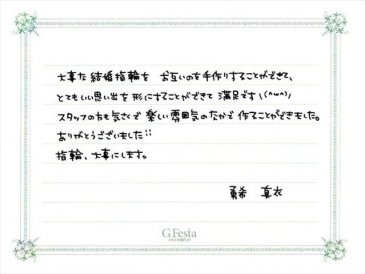 大事な結婚指輪を お互いのを手作りすることができて、
とてもいい思い出を形にすることができて満足です\(^w^)/
スタッフの方も気さくで楽しい雰囲気のなかで作ることができました。
ありがとうございました!!
指輪、大事にします。
勇希 真衣
G.Festa